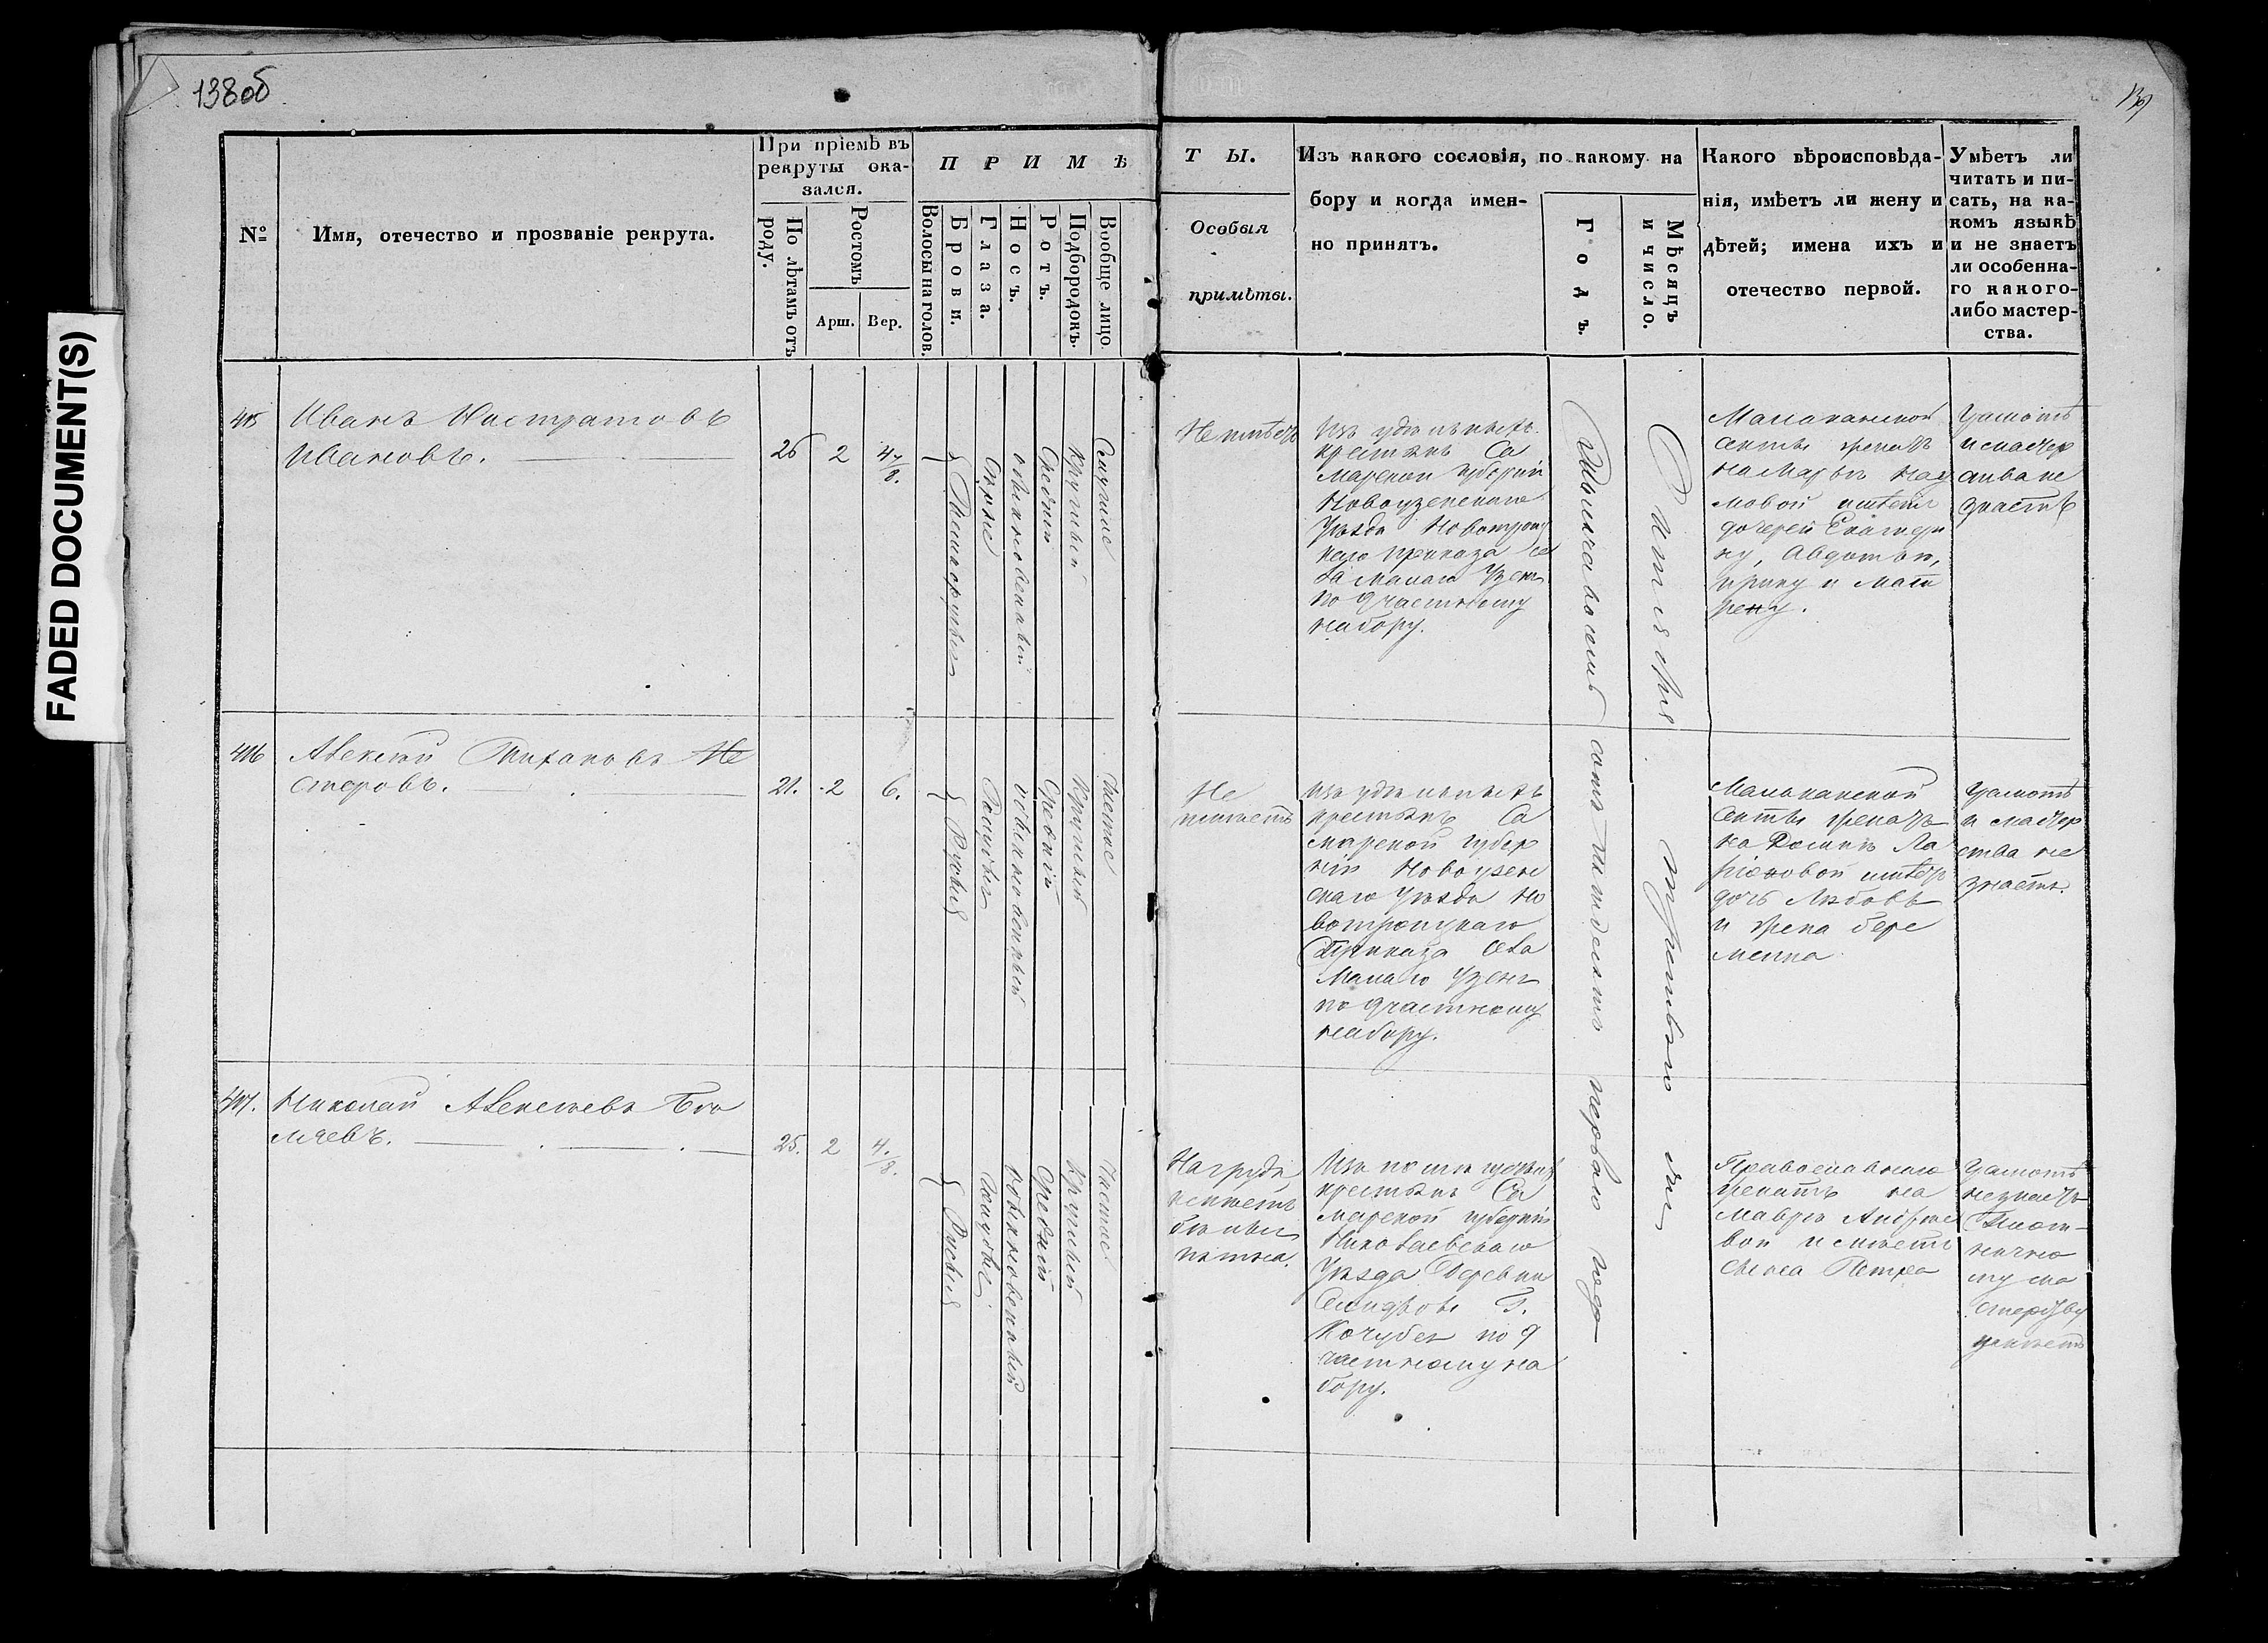 138об
139
FADED DOCUMENT(S)
№
Имя, отечество и прозваніе рекрута.
При пріемѣ въ
рекруты ока-
зался.
По лѣтамъ отъ
роду.
Ростомъ
Арш.
Вер.
ПРИМѢ
Волосы на голов.
Брови.
Глаза.
Носъ.
Ротъ.
Подбородокъ.
Вообще лицо.
ТЫ.
Особыя
примѣты.
Изъ какого сословія, по какому на
бору и когда имен-
но принятъ.
Годъ.
Мѣсяцъ
и число.
Какого вѣроисповѣда-
нія, имѣетъ ли жену и
дѣтей; имена ихъ и
отечество первой.
Умѣетъ ли
читать и пи-
сать, на ка-
комъ языкѣ
и не знаетъ
ли особенна-
го какого-
либо мастер-
ства.
415
Иванъ Калистратовъ
Ивановъ.
26
2
4 7/8.
Темнорусыя
Сѣрые
обыкновенный
Средній
Круглый
Неимѣетъ
Изъ удѣльныхъ
крестьянъ Са
марской губерніи
Новоузенскаго
Уѣзда Новотроиц
каго приказа се
ла Малаго Узеня
по 9 частному
набору.
Тысяча восемь сотъ пятдесятъ перваго года
Октября третьяго дня
Малаканской
Секты женатъ
на Марьѣ Нау
мовой имѣетъ
дочерей Екатери
ну, Авдотью,
Ирину и Мат
рену.
Грамотѣ
и мастер
ства не
знаетъ
416
Алексѣй Не
стеровъ.
21.
2
6.
Русыя
Голубые
обыкновенный
Средній
Круглый
Чистое
Не
имѣетъ
Изъ удѣльныхъ
крестьянъ Са
марской губер
ніи Новоузен
скаго Уѣзда Но
вотроицкаго
Приказа Села
Малаго Узеня
по 9 частному
набору.
Малаканской
Секты женатъ
на Домнѣ Ла
ріоновой имѣетъ
дочь Любовь
и жена бере
менна
Грамотѣ
и мастер
ства не
знаетъ.
417.
Николай Алексѣевъ
25.
2
4./8.
Русыя
Голубые
обыкновенный
Средній
Круглый
Чистое
На груди
имѣетъ
бѣлыя
пятна.
Изъ помѣщичьихъ
крестьянъ Са
марской губерніи
Николаевскаго
Уѣзда Деревни
Г.
Кочубея по 9
частному на
бору.
Православнаго
женатъ на
Маврѣ Андрее
вой и имѣетъ
сына Петра
Грамотѣ
незнаетъ
Плот-
ничьно
му ма
стерству
умѣетъ